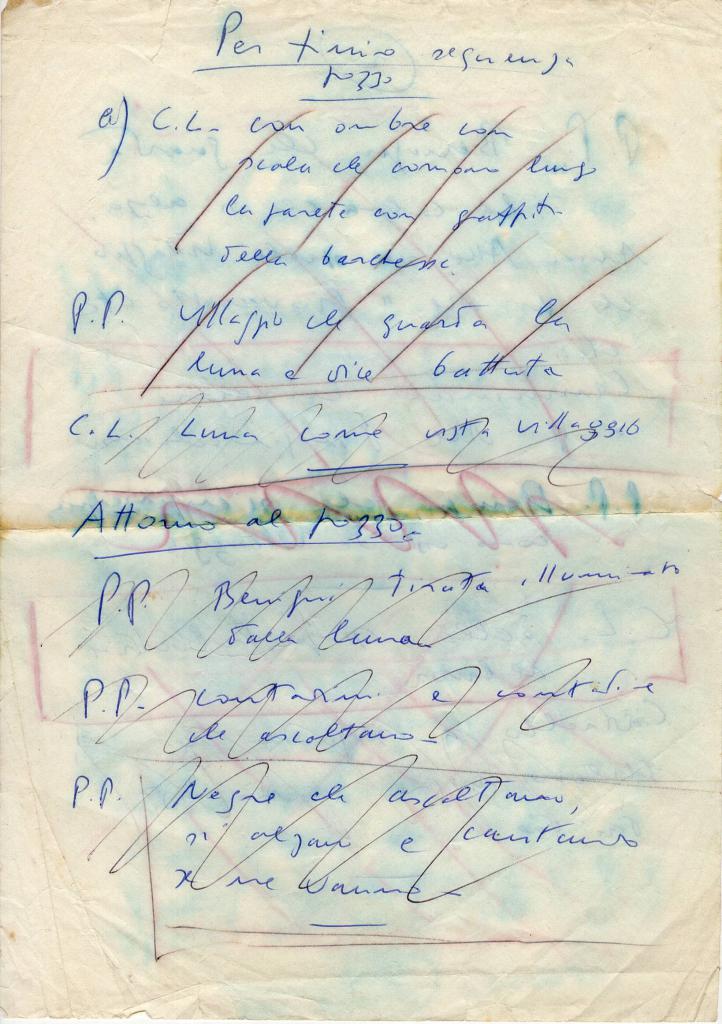 Per finire sequenza
pozzo
a) C.L. con ombre con
scala che corrono lungo
la parete con graffiti
della barchessa.
P.P. Villaggio che guarda la
luna e dice battuta
C.L. Luna come vista Villaggio
Attorno al pozzo.
P.P. Benigni tirata illuminato
dalla luna
P.P. contadini e contadine
che ascoltano
P.P. Negre che ascoltano,
si alzano e cantando
se ne vanno